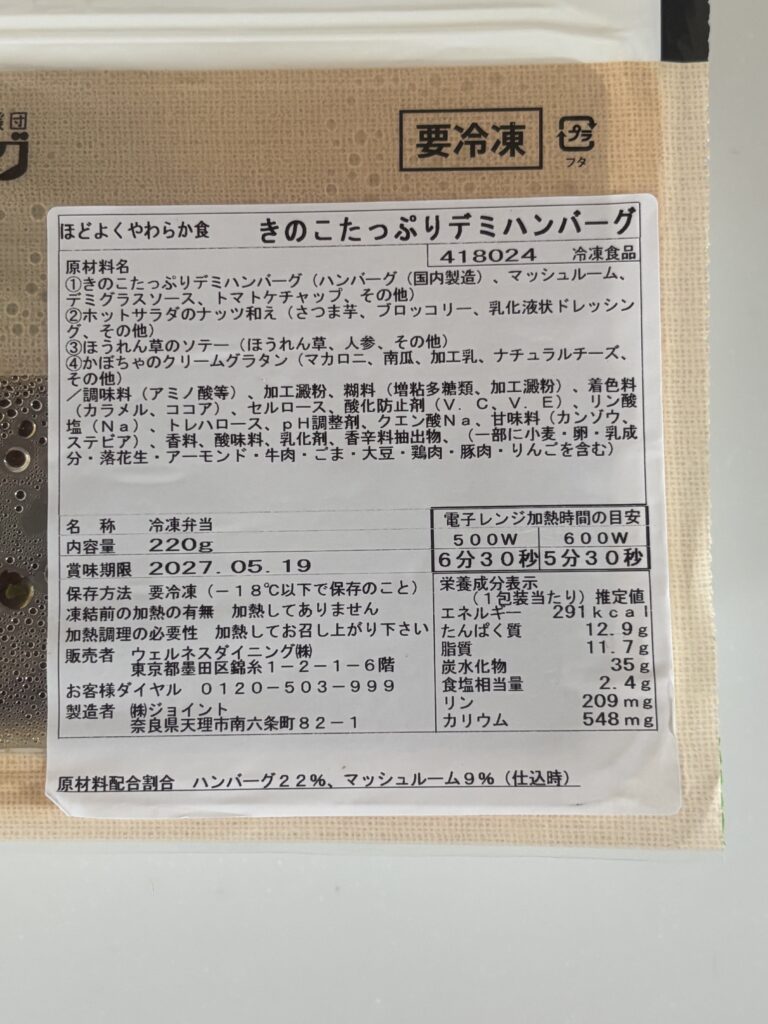 団
グ
要冷凍
プラ
フタ
ほどよくやわらか食 きのこたっぷりデミハンバーグ
418024 冷凍食品
原材料名
①きのこたっぷりデミハンバーグ（ハンバーグ（国内製造）、マッシュルーム、
デミグラスソース、トマトケチャップ、その他）
②ホットサラダのナッツ和え（さつま芋、ブロッコリー、乳化液状ドレッシン
グ、その他）
③ほうれん草のソテー（ほうれん草、人参、その他）
④かぼちゃのクリームグラタン（マカロニ、南瓜、加工乳、ナチュラルチーズ、
その他）
／調味料（アミノ酸等）、加工澱粉、糊料（増粘多糖類、加工澱粉）、着色料
（カラメル、ココア）、セルロース、酸化防止剤（V．C、V．E）、リン酸
塩（Na）、トレハロース、pH調整剤、クエン酸Na、甘味料（カンゾウ、
ステビア）、香料、酸味料、乳化剤、香辛料抽出物、（一部に小麦・卵・乳成
分・落花生・アーモンド・牛肉・ごま・大豆・鶏肉・豚肉・りんごを含む）
名 称 冷凍弁当
内容量 220g
賞味期限 2027.05.19
保存方法 要冷凍（－18℃以下で保存のこと）
凍結前の加熱の有無 加熱してありません
加熱調理の必要性 加熱してお召し上がり下さい
販売者 ウェルネスダイニング㈱
東京都墨田区錦糸1－2－1－6階
お客様ダイヤル 0120－503－999
製造者 ㈱ジョイント
奈良県天理市南六条町82－1
電子レンジ加熱時間の目安
500W 600W
6分30秒 5分30秒
栄養成分表示
（1包装当たり）推定値
エネルギー 291kcal
たんぱく質 12.9g
脂質 11.7g
炭水化物 35g
食塩相当量 2.4g
リン 209mg
カリウム 548mg
原材料配合割合 ハンバーグ22％、マッシュルーム9％（仕込時）